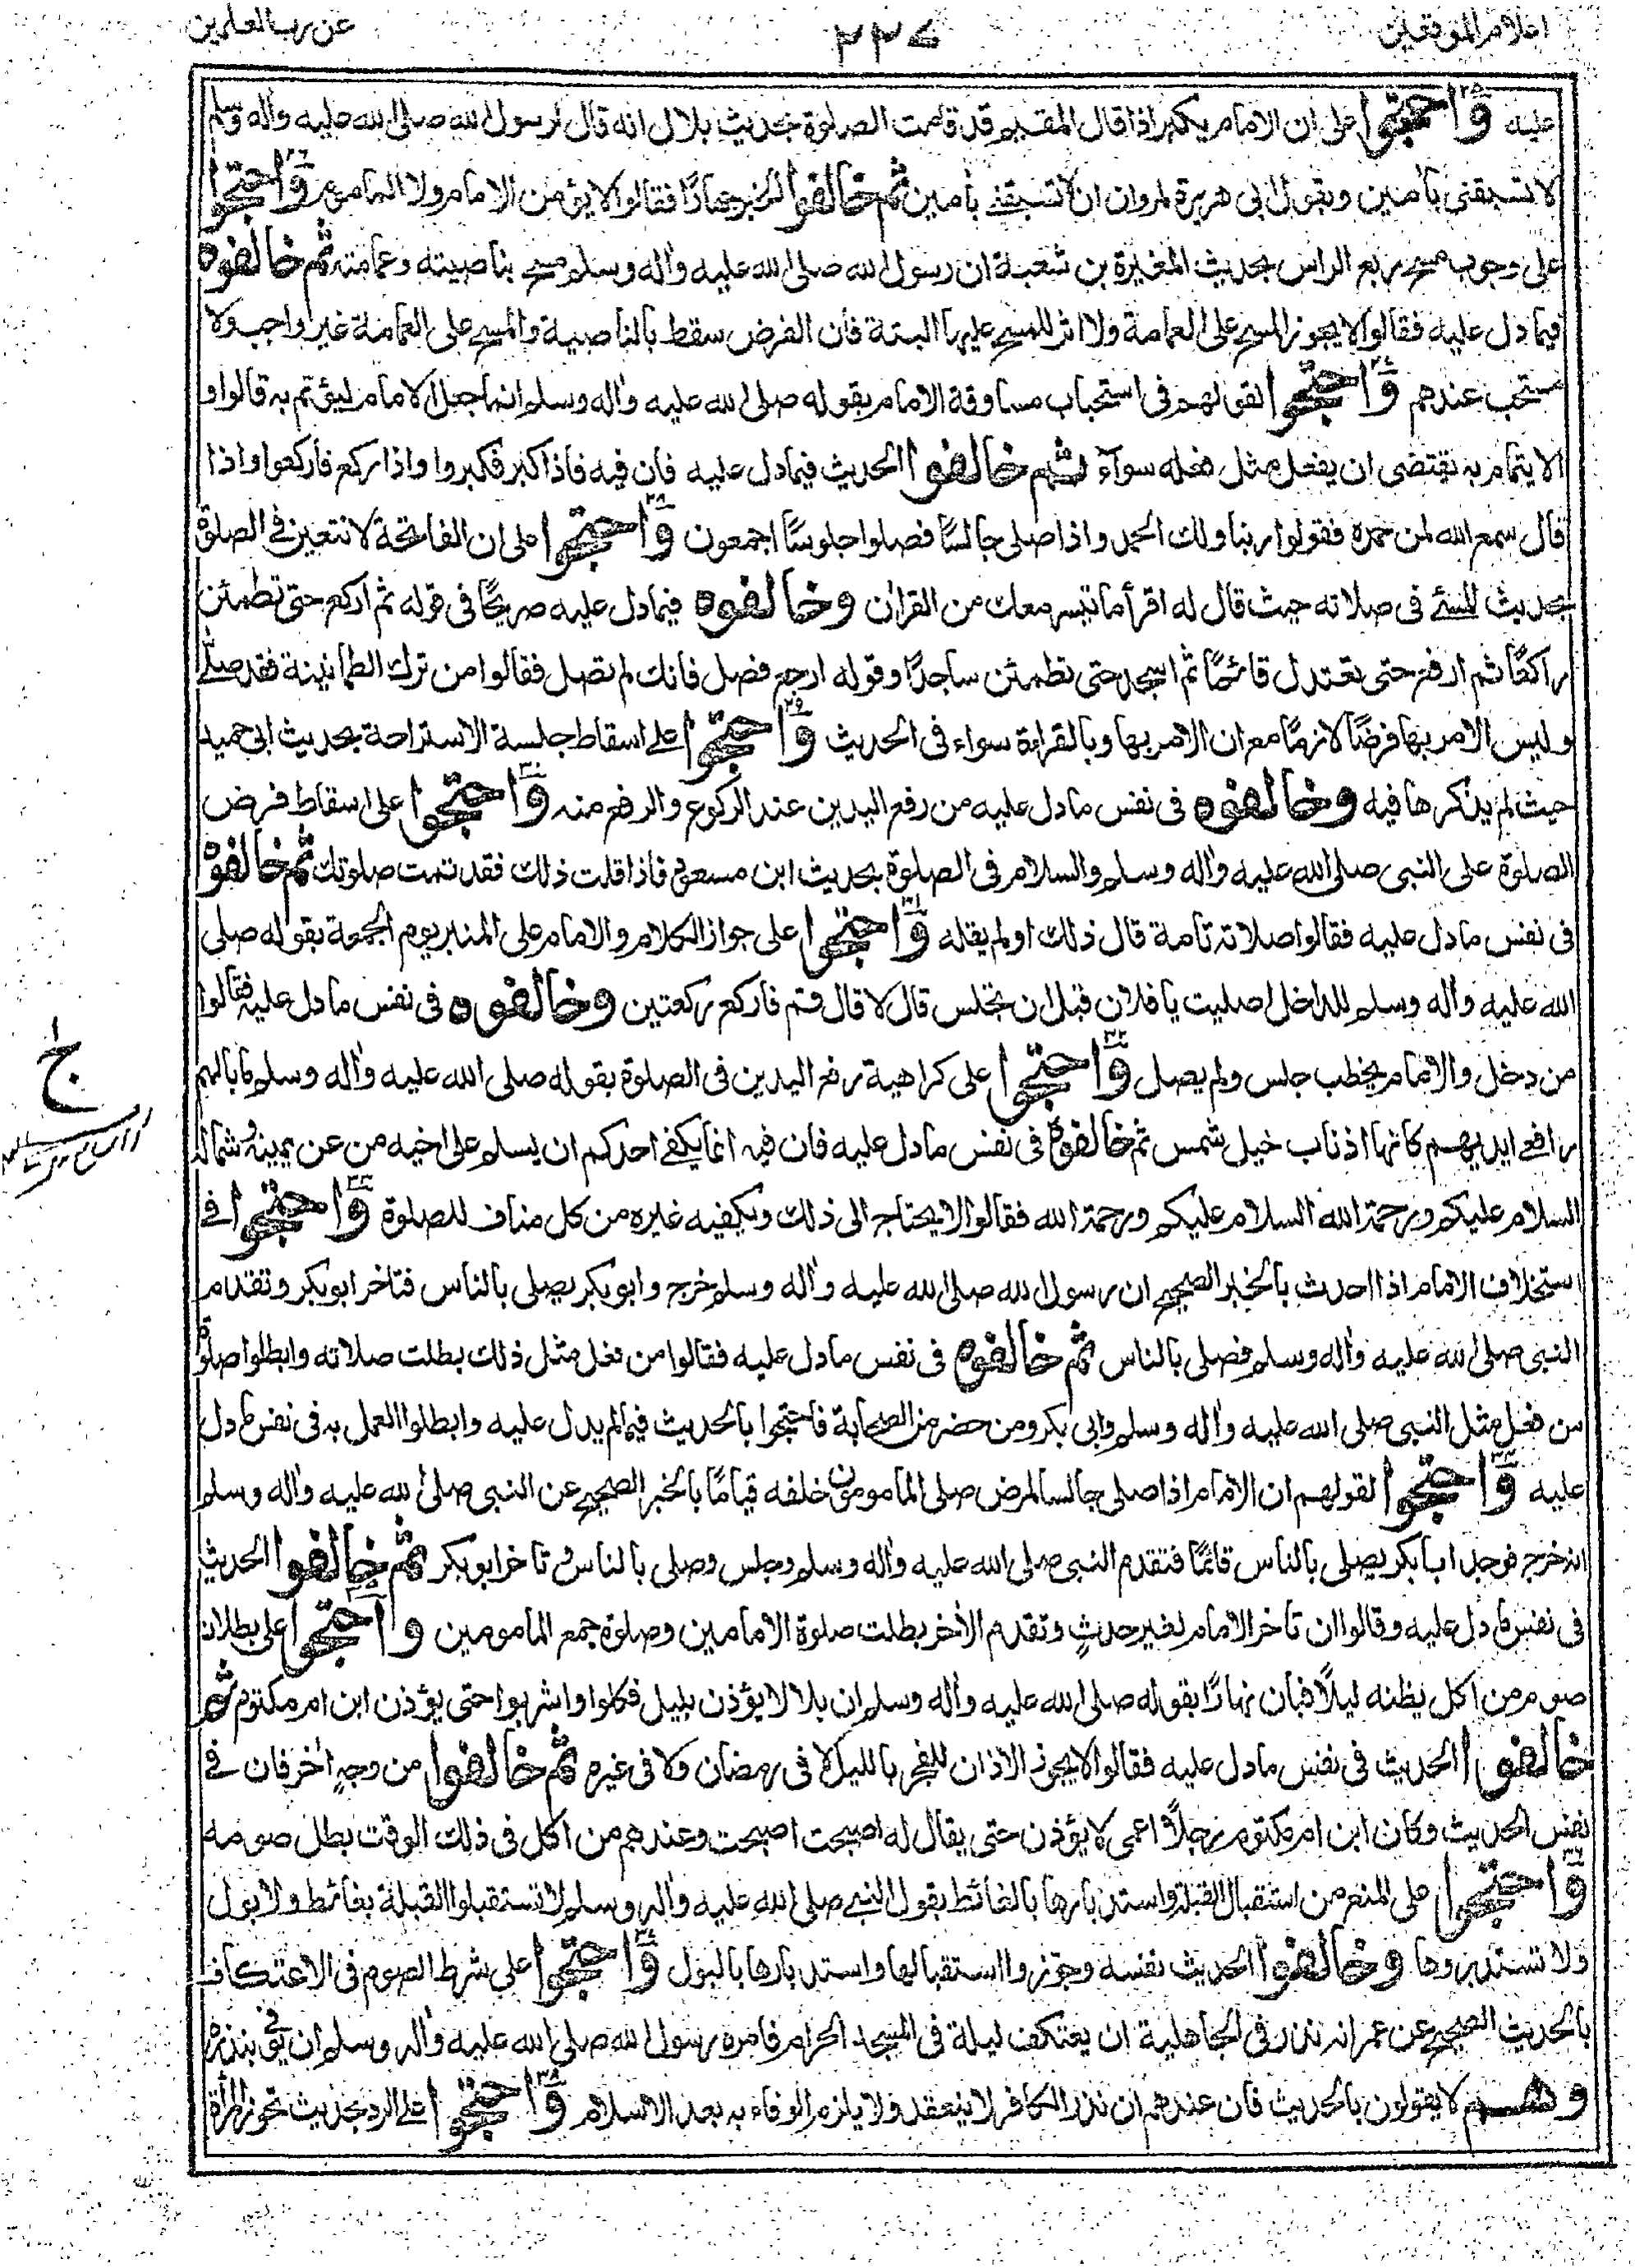 اعلام الموقعين ٢٢٧ عن رب العلمين
عليه وَاحتجوا على ان الامام يكبر اذا قال المقيم قد قامت الصلوة بحديث بلال انه قال لرسول الله صلى الله عليه واٰله وسلم
لا تسبقنى بآمين وبقول ابى هريرة لمروان ان لا تسبقنے بآمين ثم خالفوا الخبر جهارًا فقالوا لا يؤمن الامام ولا الماموم وَاحتجوا
على وجوب مسح ربع الراس بحديث المغيرة بن شعبة ان رسول الله صلى الله عليه واٰله وسلم مسح بناصيته وعمامته ثم خالفوه
فيما دل عليه فقالوا لا يجوز المسح على العمامة ولا اثر للمسح عليها البتة فان الفرض سقط بالناصية والمسح على العمامة غير واجب ولا
مستحب عندهم وَاحتجوا لقولهم فى استحباب مساوقة الامام بقوله صلى الله عليه واٰله وسلم انما جعل الامام ليؤتم به قالوا و
الايتمام به يقتضى ان يفعل مثل فعله سوآء ثم خالفوا الحديث فيما دل عليه فان فيه فاذا كبر فكبروا واذا ركع فاركعوا واذا
قال سمع الله لمن حمده فقولوا ربنا ولك الحمد واذا صلى جالسًا فصلوا جلوسًا اجمعون وَاحتجوا على ان الفاتحة لا تتعين فى الصلوة
بحديث المسئ فى صلاته حيث قال له اقرأ ما تيسر معك من القرآن وخالفوه فيما دل عليه صريحًا فى قوله ثم اركع حتى تطمئن
راكعًا ثم ارفع حتى تعتدل قائمًا ثم اسجد حتى تطمئن ساجدًا وقوله ارجع فصل فانك لم تصل فقالوا من ترك الطمانينة فقد صلے
وليس الامر بها فرضًا لازمًا مع ان الامر بها وبالقراءة سواء فى الحديث وَاحتجوا علے اسقاط جلسة الاستراحة بحديث ابى حميد
حيث لم يذكرها فيه وخالفوه فى نفس ما دل عليه من رفع اليدين عند الركوع والرفع منه وَاحتجوا على اسقاط فرض
الصلوة على النبى صلى الله عليه واٰله وسلم والسلام فى الصلوة بحديث ابن مسعود فاذا قلت ذلك فقد تمت صلوتك ثم خالفوه
فى نفس ما دل عليه فقالوا صلاته تامة قال ذلك او لم يقله وَاحتجوا على جواز الكلام والامام على المنبر يوم الجمعة بقوله صلى
الله عليه واٰله وسلم للداخل اصليت يا فلان قبل ان تجلس قال لا قال قم فاركع ركعتين وخالفوه فى نفس ما دل عليه فقالوا
من دخل والامام يخطب جلس ولم يصل وَاحتجوا على كراهية رفع اليدين فى الصلوة بقوله صلى الله عليه واٰله وسلم ما بالهم
رافعے ايديهم كانها اذناب خيل شمس ثم خالفوه فى نفس ما دل عليه فان فيه انما يكفے احدكم ان يسلم على اخيه من عن يمينه وشماله
السلام عليكم ورحمة الله السلام عليكم ورحمة الله فقالوا لا يحتاج الى ذلك ويكفيه غيره من كل مناف للصلوة وَاحتجوا فے
ستخلاف الامام اذا احدث بالخبر الصحيح ان رسول الله صلى الله عليه واٰله وسلم خرج وابو بكر يصلى بالناس فتاخر ابو بكر وتقدم
النبى صلى الله عليه واٰله وسلم فصلى بالناس ثم خالفوه فى نفس ما دل عليه فقالوا من فعل مثل ذلك بطلت صلاته وابطلوا صلوة
من فعل مثل النبى صلى الله عليه واٰله وسلم وابى بكر ومن حضر من الصحابة فاحتجوا بالحديث فيما لم يدل عليه وابطلوا العمل به فى نفس ما دل
عليه وَاحتجوا لقولهم ان الامام اذا صلى جالسا لمرض صلى المامومون خلفه قيامًا بالخبر الصحيح عن النبى صلى الله عليه واٰله وسلم
انه خرج فوجد ابا بكر يصلى بالناس قائمًا فتقدم النبى صلى الله عليه واٰله وسلم وجلس وصلى بالناس و تاخر ابو بكر ثم خالفوا الحديث
فى نفس ما دل عليه وقالوا ان تاخر الامام لغير حدثٍ وتقدم الاٰخر بطلت صلوة الامامين وصلوة جمع المامومين وَاحتجوا على بطلان
صوم من اكل يظنه ليلًا فبان نهارًا بقوله صلى الله عليه واٰله وسلم ان بلالا يؤذن بليل فكلوا واشربوا حتى يؤذن ابن ام مكتوم ثم
خالفوا الحديث فى نفس ما دل عليه فقالوا لا يجوز الاذان للفجر بالليل لا فى رمضان ولا فى غيره ثم خالفوا من وجهٍ اٰخر فان فے
نفس الحديث وكان ابن ام مكتوم رجلًا اعمى لا يؤذن حتى يقال له اصبحت اصبحت وعندهم من اكل فى ذلك الوقت بطل صومه
وَاحتجوا على المنع من استقبال القبلة واستدبارها بالغائط بقول النبے صلى الله عليه واٰله وسلم لا تستقبلوا القبلة بغائط ولا بول
ولا تستدبروها وخالفوا الحديث نفسه وجوزوا استقبالها واستدبارها بالبول وَاحتجوا على شرط الصوم فى الاعتكاف
بالحديث الصحيح عن عمر انه نذر فى الجاهلية ان يعتكف ليلة فى المسجد الحرام فامره رسول الله صلى الله عليه واٰله وسلم ان يوفى بنذره
وهم لا يقولون بالحديث فان عندهم ان نذر الكافر لا ينعقد ولا يلزم الوفاء به بعد الاسلام وَاحتجوا على الرد بحديث تحوز المرأة